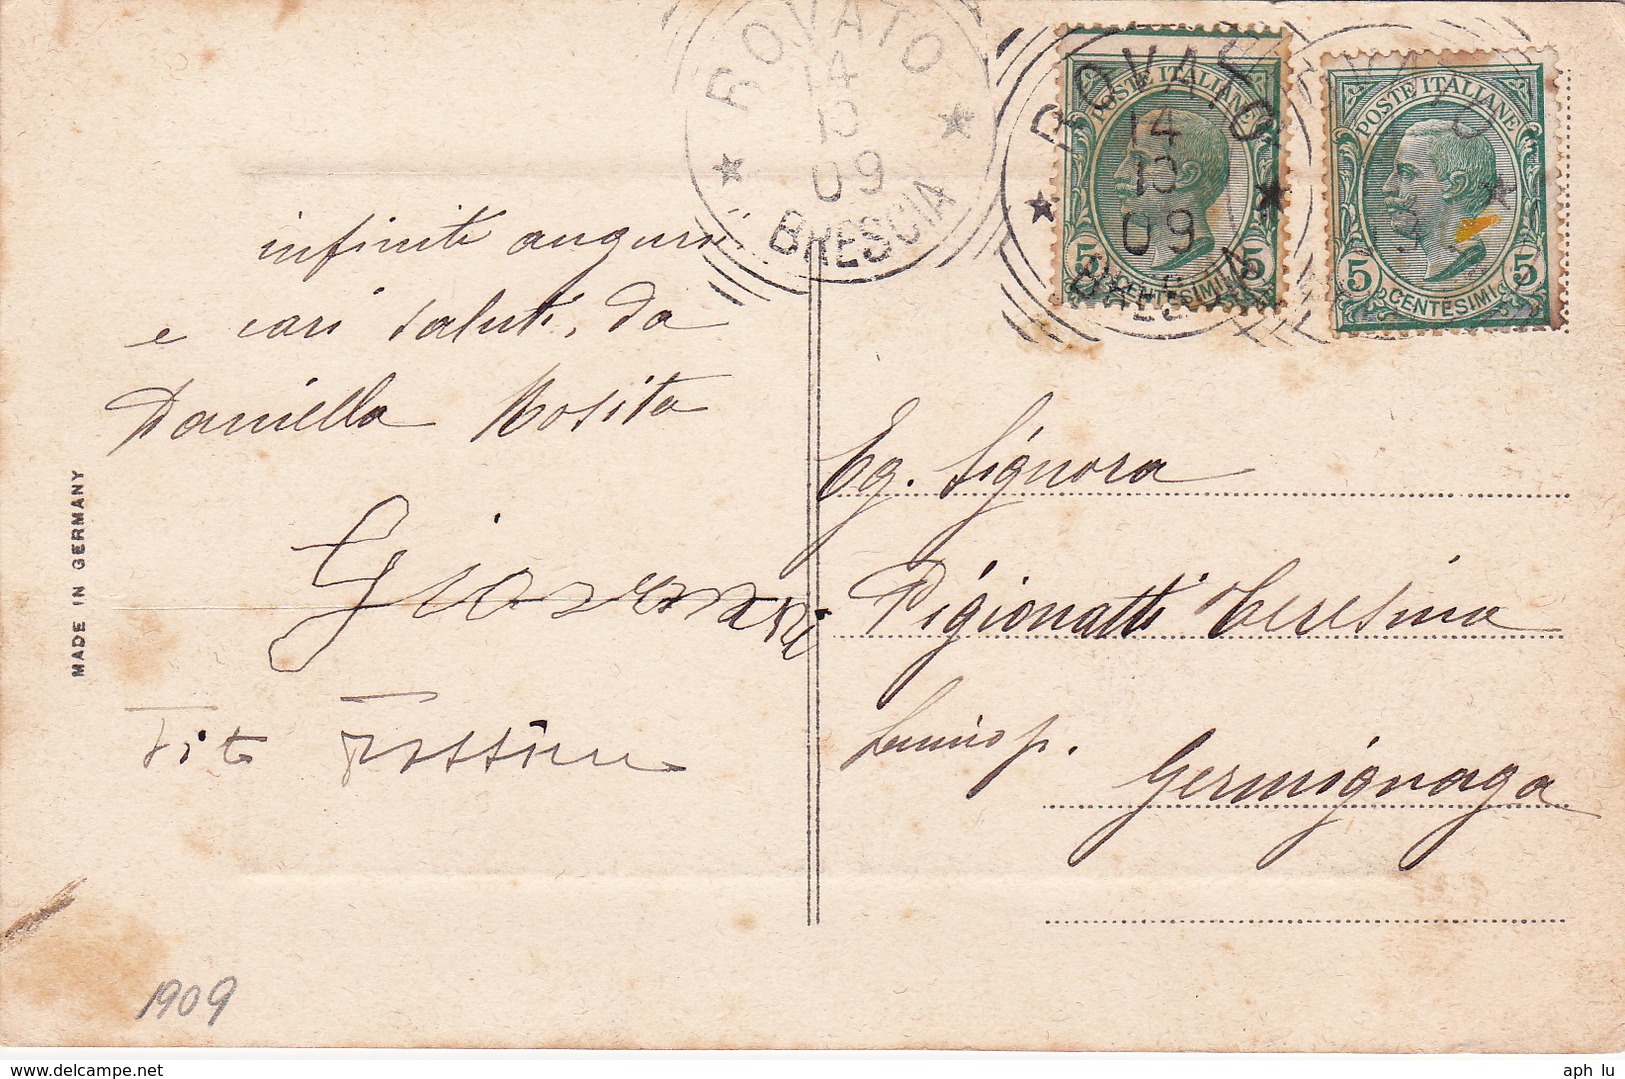 ROVATO
14
10
09
BRESCIA
ROVATO
14
10
09
BRESCIA
POSTE ITALIANE
5 CENTESIMI 5
POSTE ITALIANE
5 CENTESIMI 5
infiniti augurii
e cari saluti, da
Daniella Rosita
Giovanni
Tito
MADE IN GERMANY
1909
Eg. Signora
Pigionatti Teresina
Luino p.
Germignaga
www.delcampe.net
aph lu